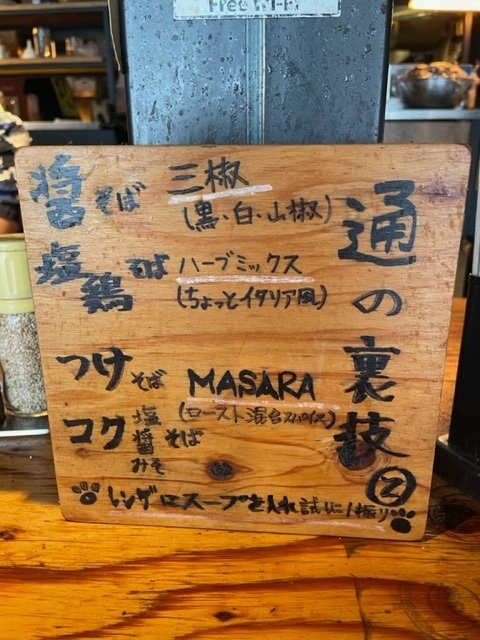 Free Wi-Fi
通の裏技②
醤そば 三椒
(黒、白、山椒)
塩 鶏 そば ハーブミックス
(ちょっとイタリア風)
つけそば MASARA
コク 塩 醤 みそ そば (ロースト混合スパイス)
レンゲにスープを入れ試しに1振り